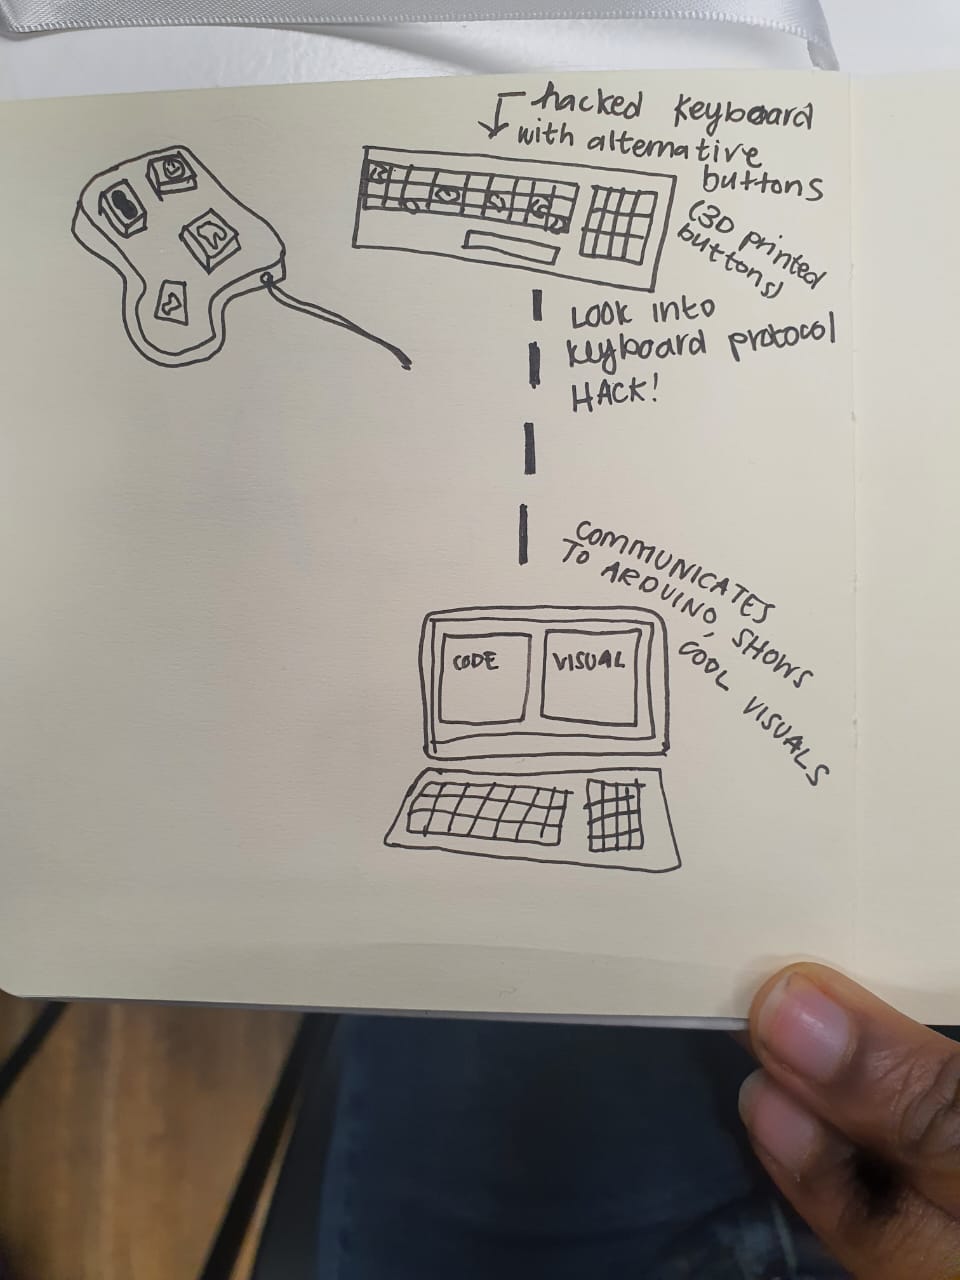 hacked keyboard
with alternative
buttons
(3D printed
buttons)
LOOK into
keyboard protocol
HACK!
COMMUNICATES
TO ARDUINO, SHOWS
COOL VISUALS
CODE
VISUAL